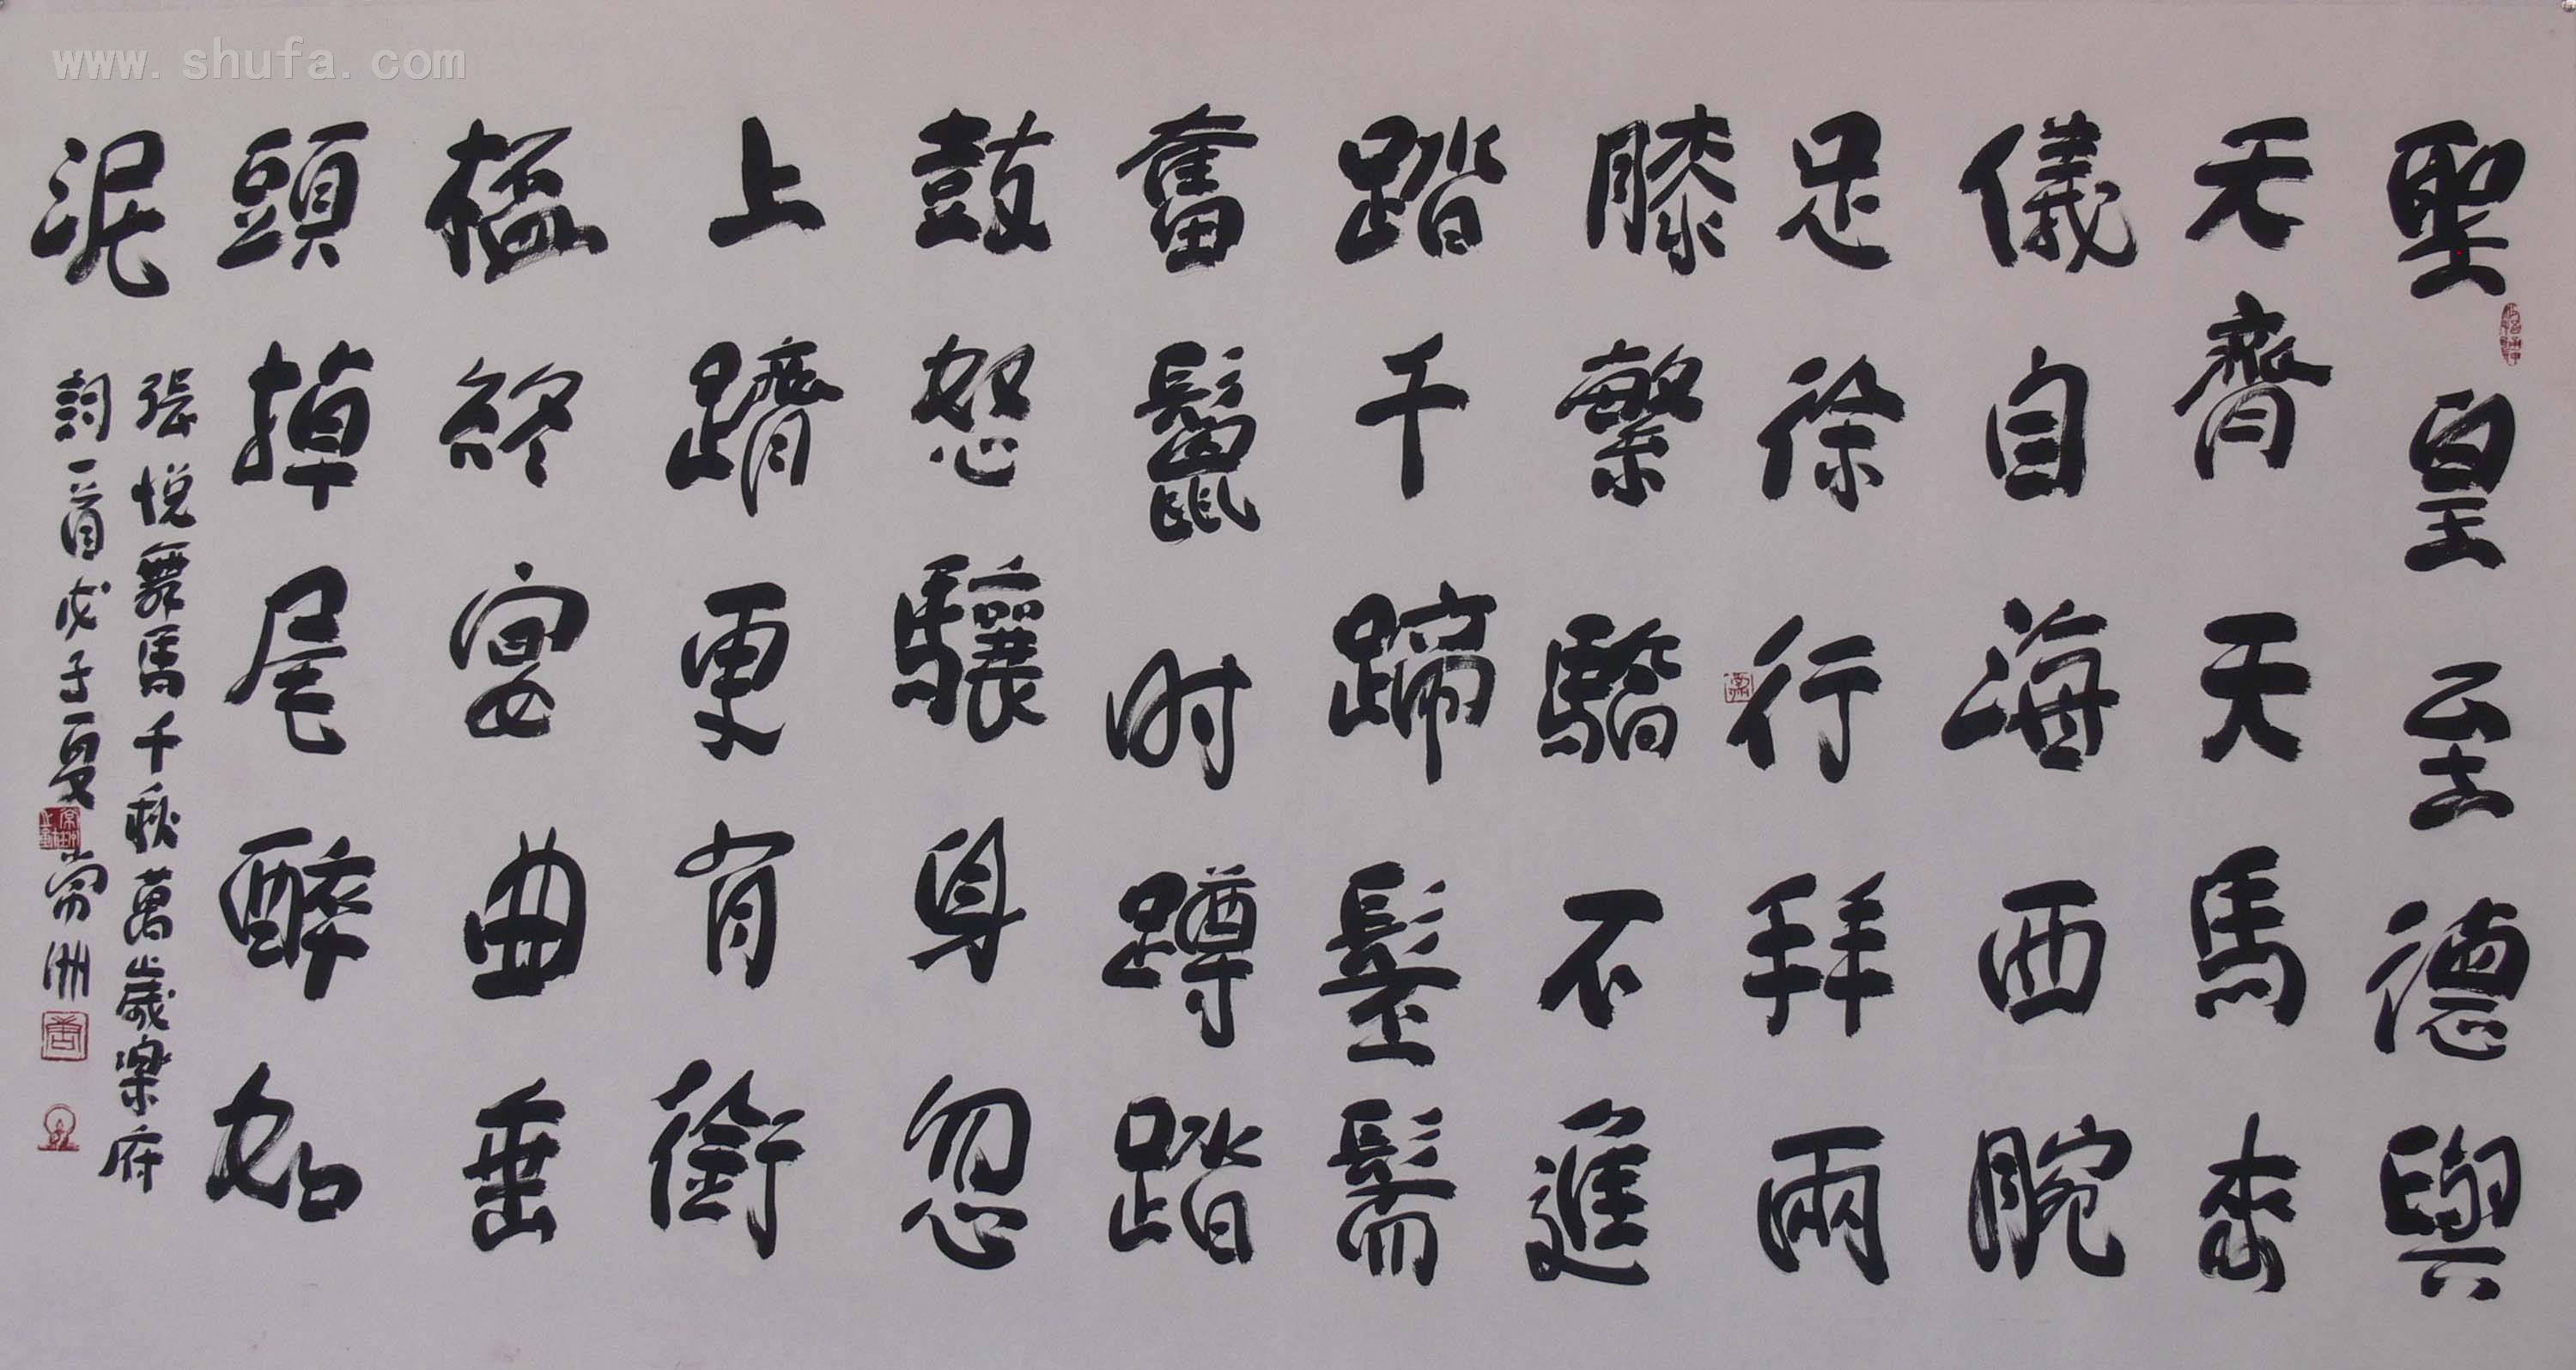 聖皇至德與
天齊天馬來
儀自海西腕
足徐行拜兩
膝繁驕不進
踏千蹄髬髵
奮鬣时蹲踏
鼓怒驤身忽
上躋更有銜
終宴曲垂
頭掉尾醉如
泥
張悦舞馬千秋萬歲樂府
詞一首戊子夏常洲
www.shufa.com